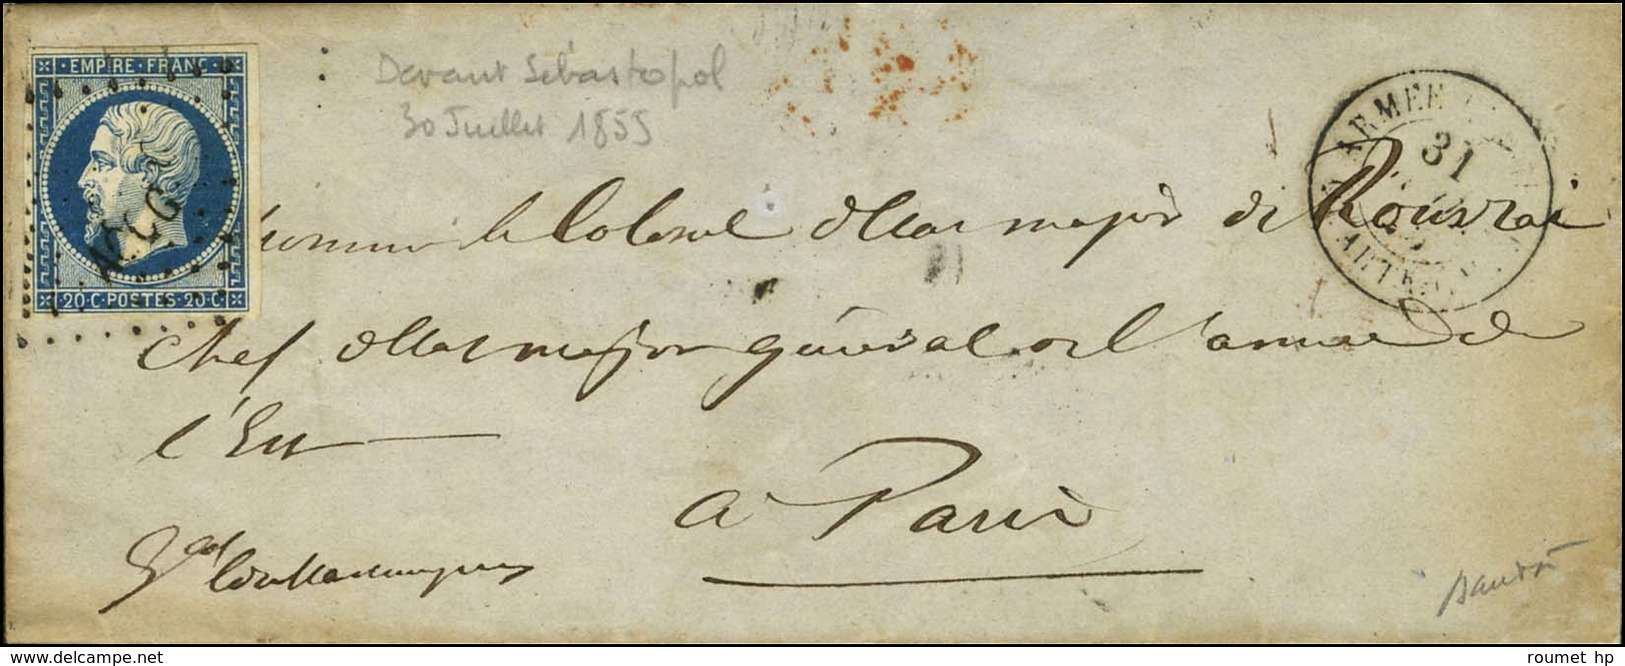 EMPIRE · FRANC ·
20 · C · POSTES · 20 · C ·
Devant Sébastopol
30 Juillet 1855
ARMEE
31
le Colonel d'Etat major de Rouvrai
Chef d'Etat major général de l'armée de
l'Est
à Paris
roumet hp